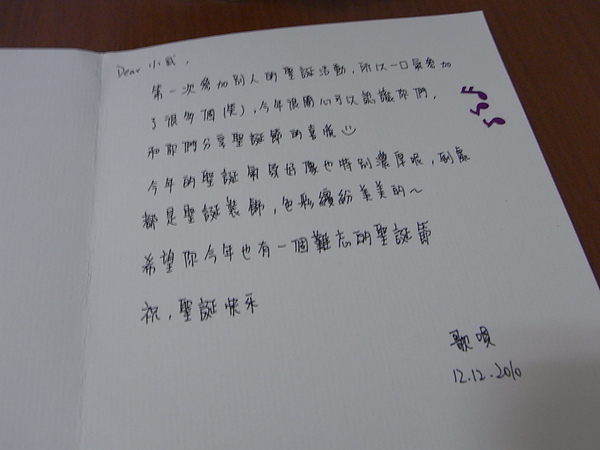 Dear 小武,
第一次參加別人的聖誕活動,所以一口氣參加
了很多個(笑),今年很開心可以認識你們,
和你們分享聖誕節的喜悅
今年的聖誕氣氛好像也特別濃厚呢,到處
都是聖誕裝飾,色彩繽紛美美的~
希望你今年也有一個難忘的聖誕節
祝,聖誕快樂
歌唄
12.12.2010